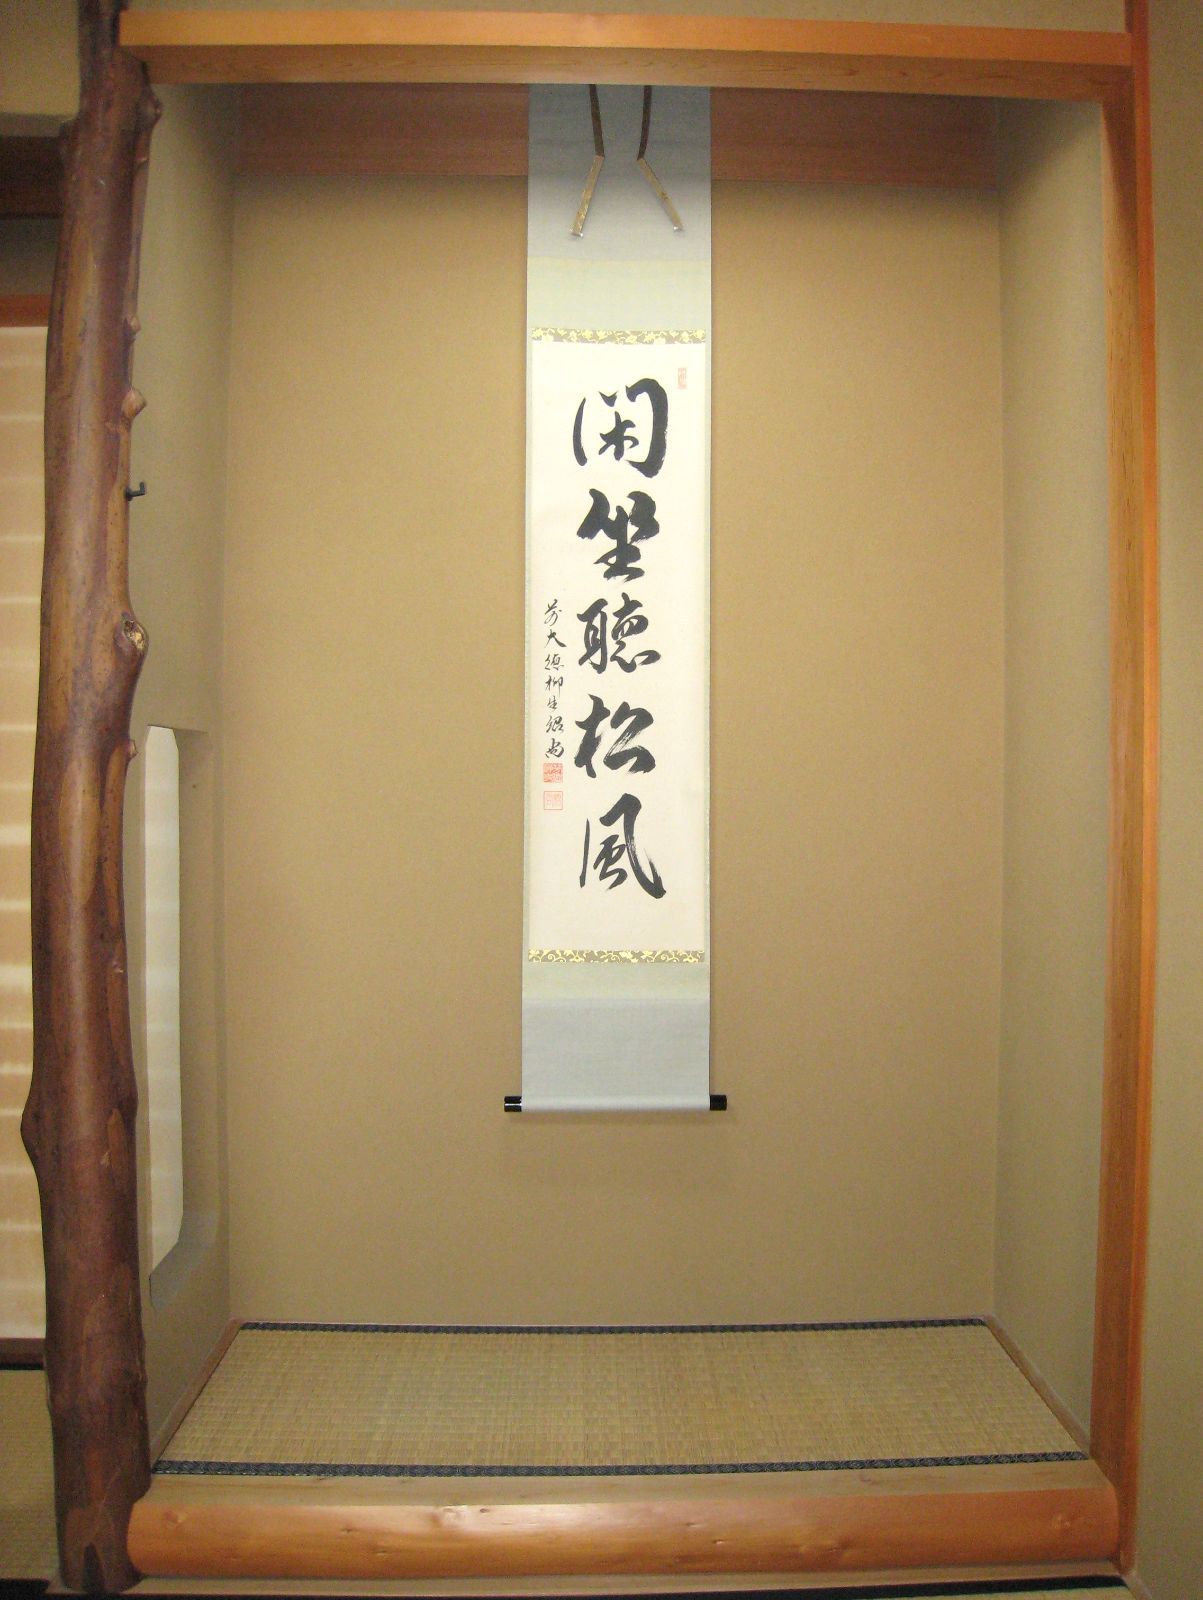 閑坐聴松風
前大徳柳生紹尚